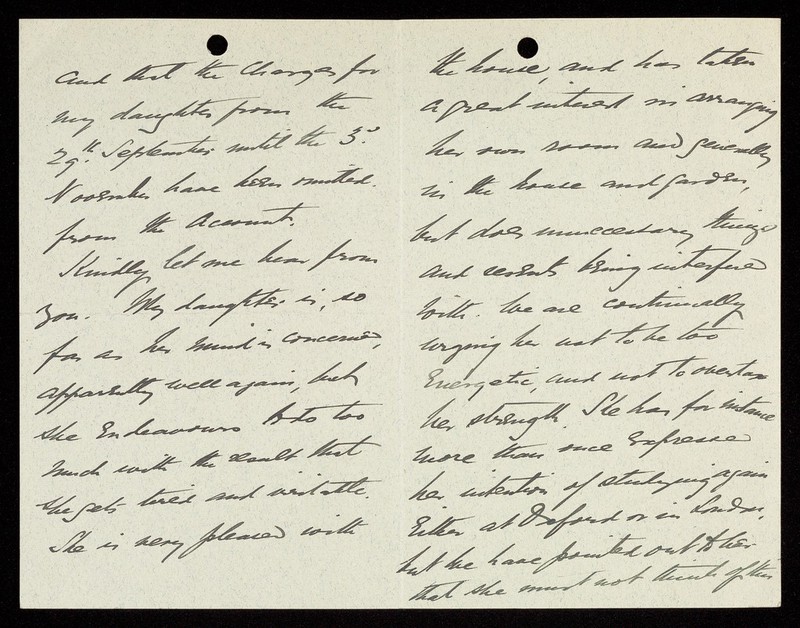 and that the charges for
my daughter from the
29th. September until the 3rd.
November have been omitted.
from the Account.
Kindly let me hear from
you. My daughter is, so
far as her mind is concerned,
apparently well again, but
she Endeavours to do too
much with the result that
she gets tired and irritable.
She is very pleased with
the house, and has taken
a great interest in arranging
her own room and generally
in the house and garden,
but does unnecessary things
and resents being interfered
with. We are continually
urging her not to be too
Energetic, and not to overtax
her strength. She has for instance
more than once Expressed
her intention of studying again
Either at Oxford or in London,
but we have pointed out to her
that she must not think of this